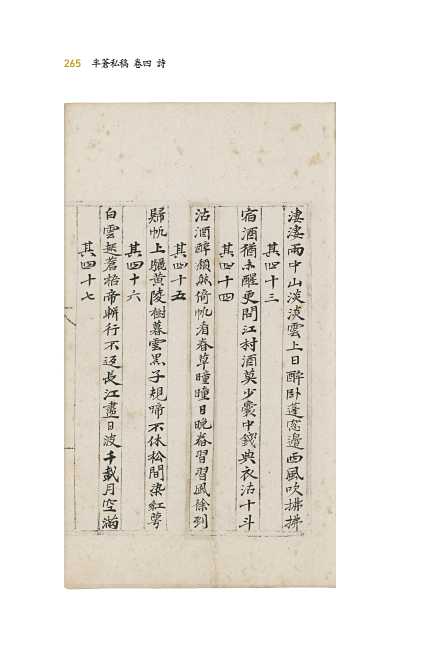 265 半蒼私稿 卷四 詩
淒淒雨中山淡淡雲上日醉卧蓬窓邉西風吹拂拂
其四十三
宿酒猶未醒更問江村酒莫少囊中錢典衣沽十斗
其四十四
沽酒醉頹然倚帆看春草曈曈日晚習習風餘到
其四十五
歸帆上黄陵樹暮雲黒子規啼不休松間染紅萼
其四十六
白雲蒼梧帝輧行不返長江盡日波千載月空滿
其四十七